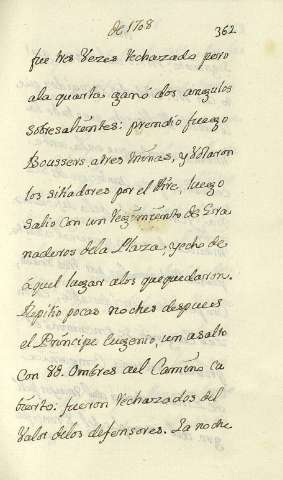 de 1708
362
fue tres Vezes rechazado pero
ala quarta ganó dos angulos
sobresalientes: prendio fuego
Boussers, a tres minas, y Volaron
los sitiadores por el Ayre, luego
salio con un regimiento de Gra
naderos dela Plaza, y echo de
aquel lugar alos que quedaron.
Repitio pocas noches despues
el Principe Eugenio, un asalto
con Ombres al Camino cu
bierto: fueron rechazados del
Valor delos defensores. La noche